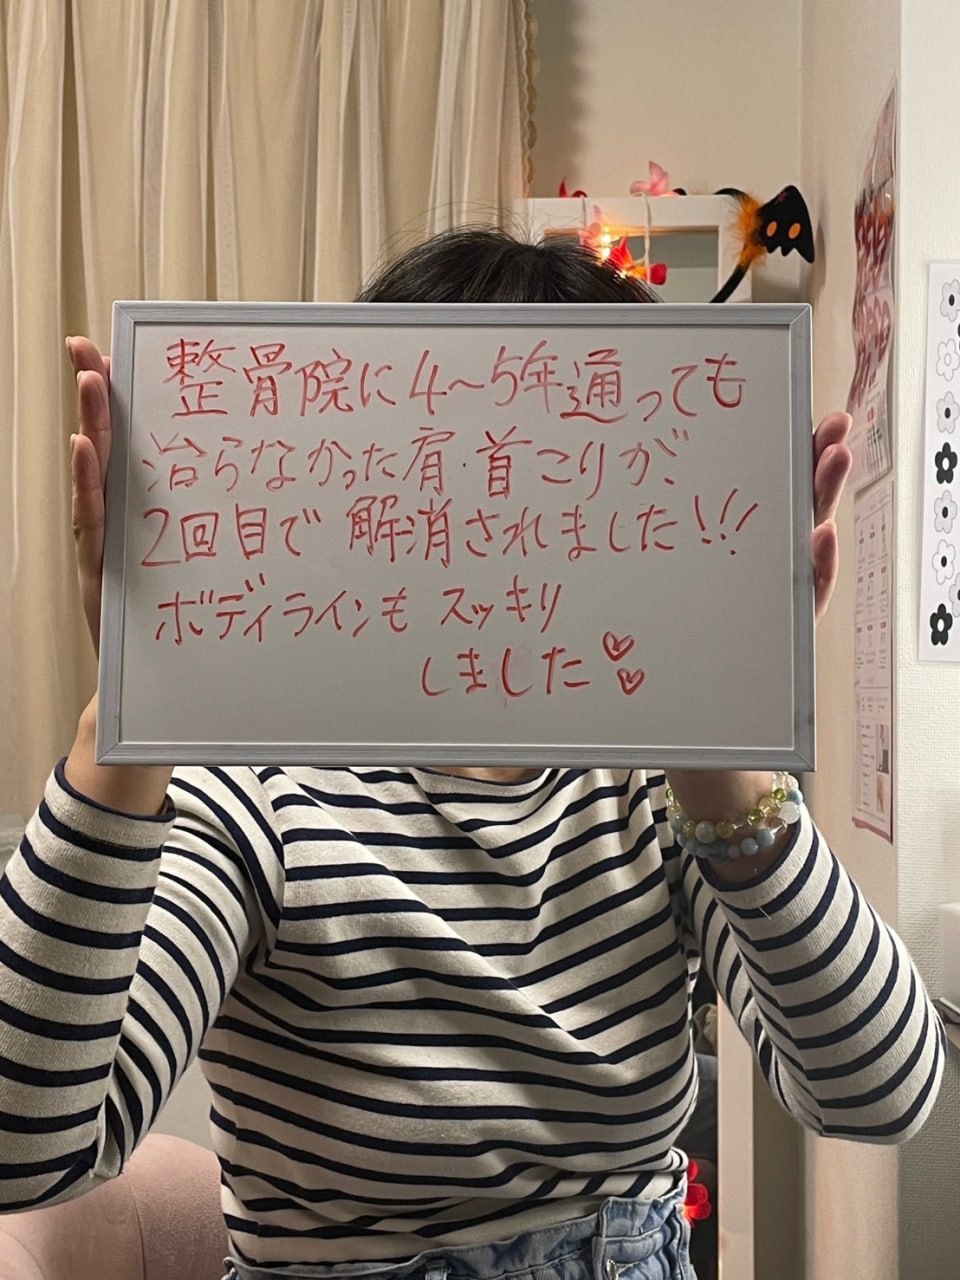 整骨院に4~5年通っても
治らなかった肩・首こりが、
2回目で解消されました!!!
ボディラインもスッキリ
しました♡♡